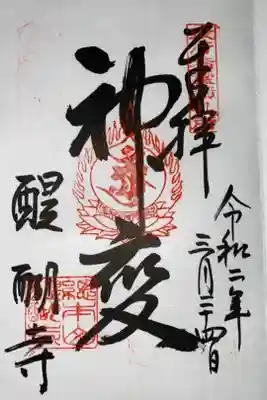 奉拝
令和二年
三月二十四日
神變
醍醐寺